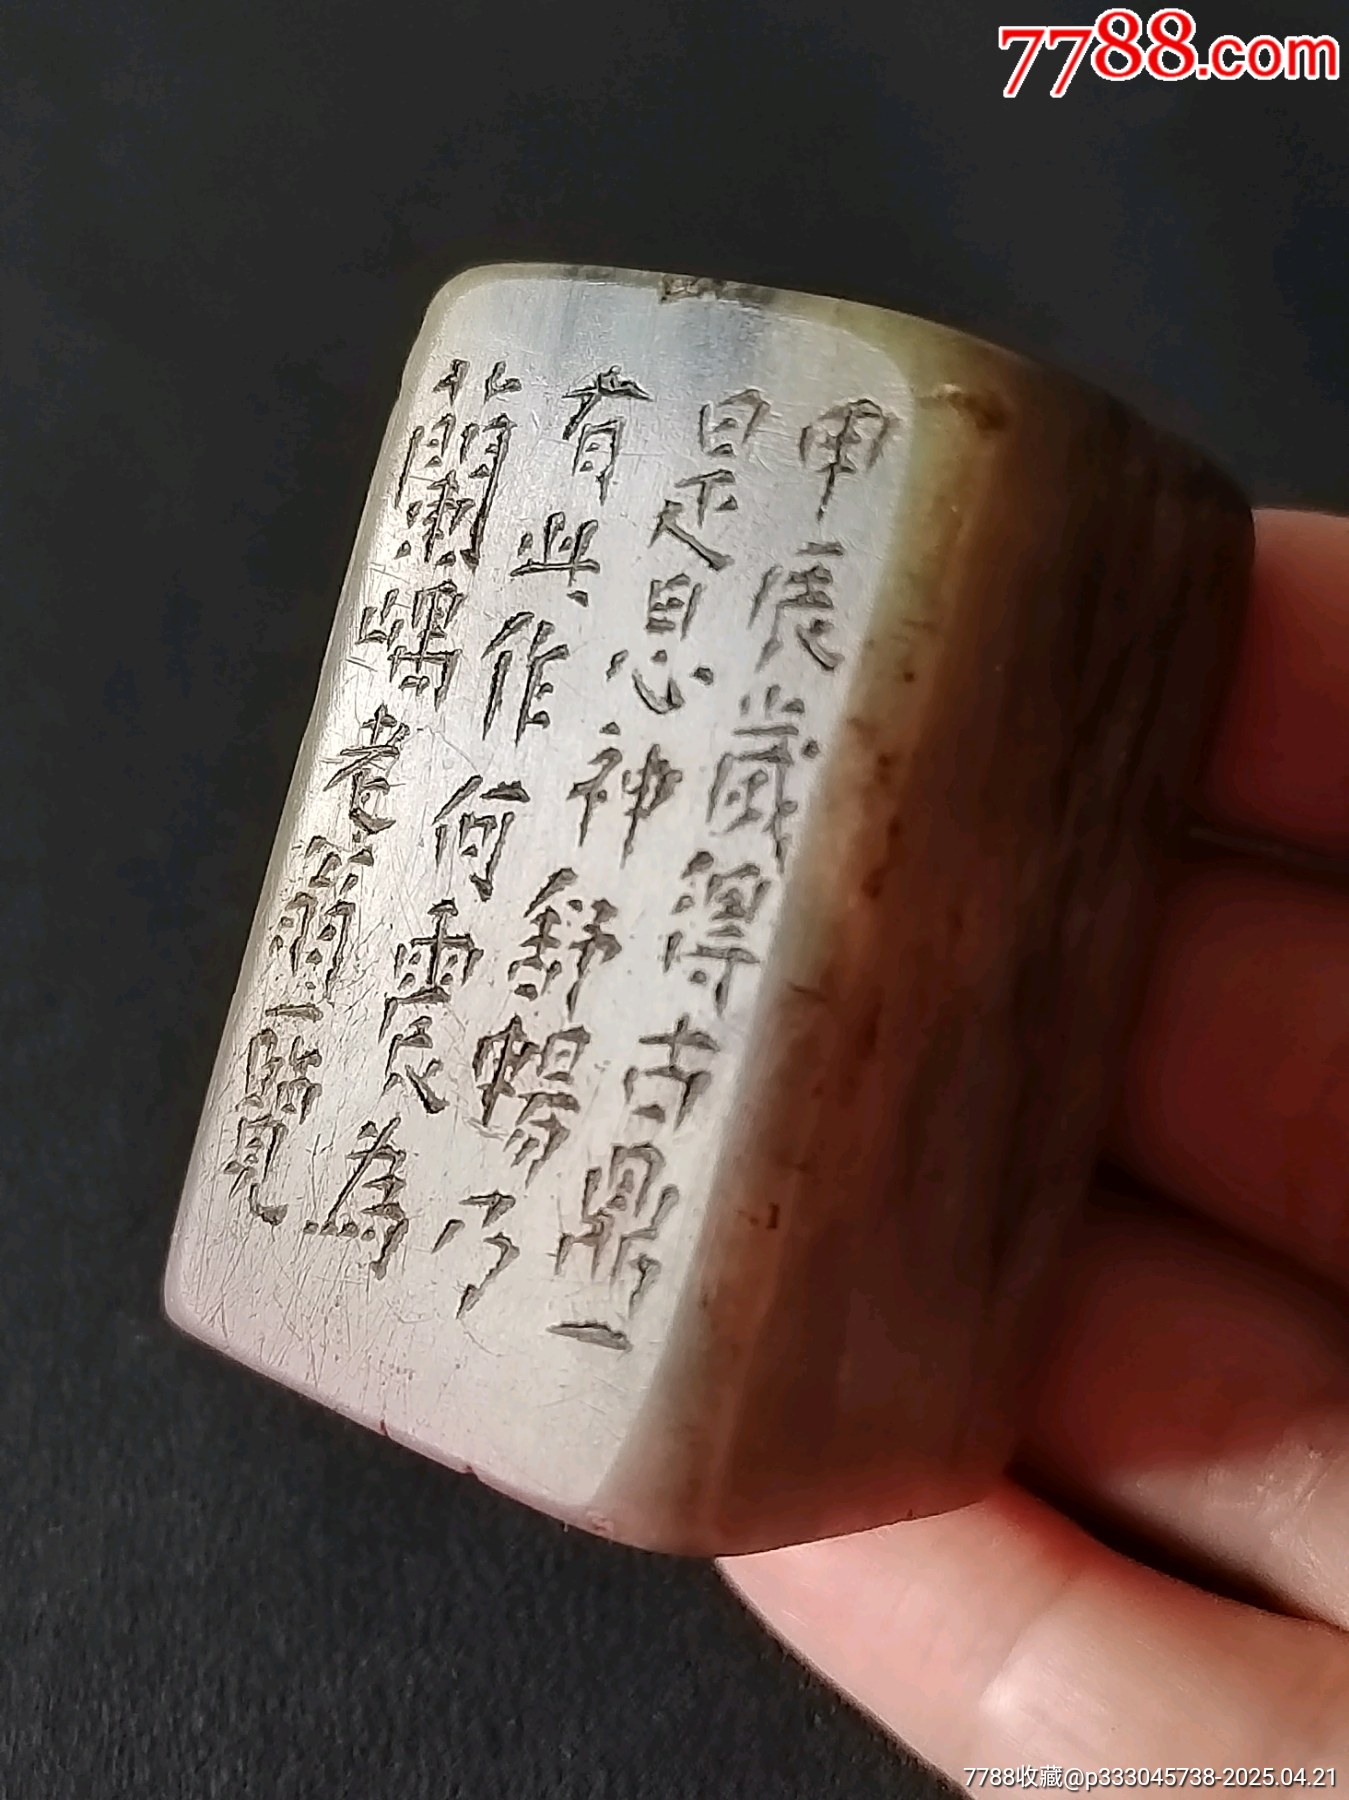 7788.com
甲辰歲得古鼎一
是息神舒暢乃
有此作何震為
蘭嵎老翁一覽
7788收藏@p333045738-2025.04.21